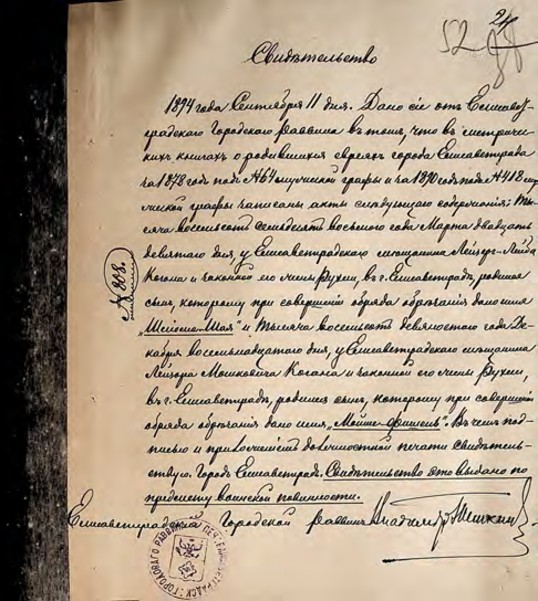 24
52 88
Свидѣтельство
1894 года Сентября 11 дня. Дано сіе отъ Елисавет-
градскаго Городскаго Раввина въ томъ, что въ метричес-
кихъ книгахъ о родившихся евреяхъ города Елисаветграда
за 1878 годъ подъ №64 мужеской графы и за 1890 годъ подъ №418 му-
жеской графы записаны акты слѣдующаго содержанія: Ты-
сяча восемьсотъ семьдесятъ восьмого года Марта двадцать
девятаго дня, у Елисаветградскаго мѣщанина Лейзера-Лейба
Когана и законной его жены Рухли, въ г. Елисаветградѣ, родился
сынъ, которому при совершеніи обряда обрѣзанія дано имя
"Шлиома-Шая" и Тысяча восемьсотъ девяностого года Де-
кабря восемнадцатаго дня, у Елисаветградскаго мѣщанина
Лейзора Мошковича Когана и законной его жены Рухли,
въ г. Елисаветградѣ, родился сынъ, которому при совершеніи
обряда обрѣзанія дано имя "Мойше-Фишель". Въ чемъ под-
писью и приложеніемъ должностной печати свидѣтель-
ствую. Городъ Елисаветградъ. Свидѣтельство это выдано по
предмету воинской повинности.
Елисаветградскій Городской Раввинъ Владимір
№ 808.